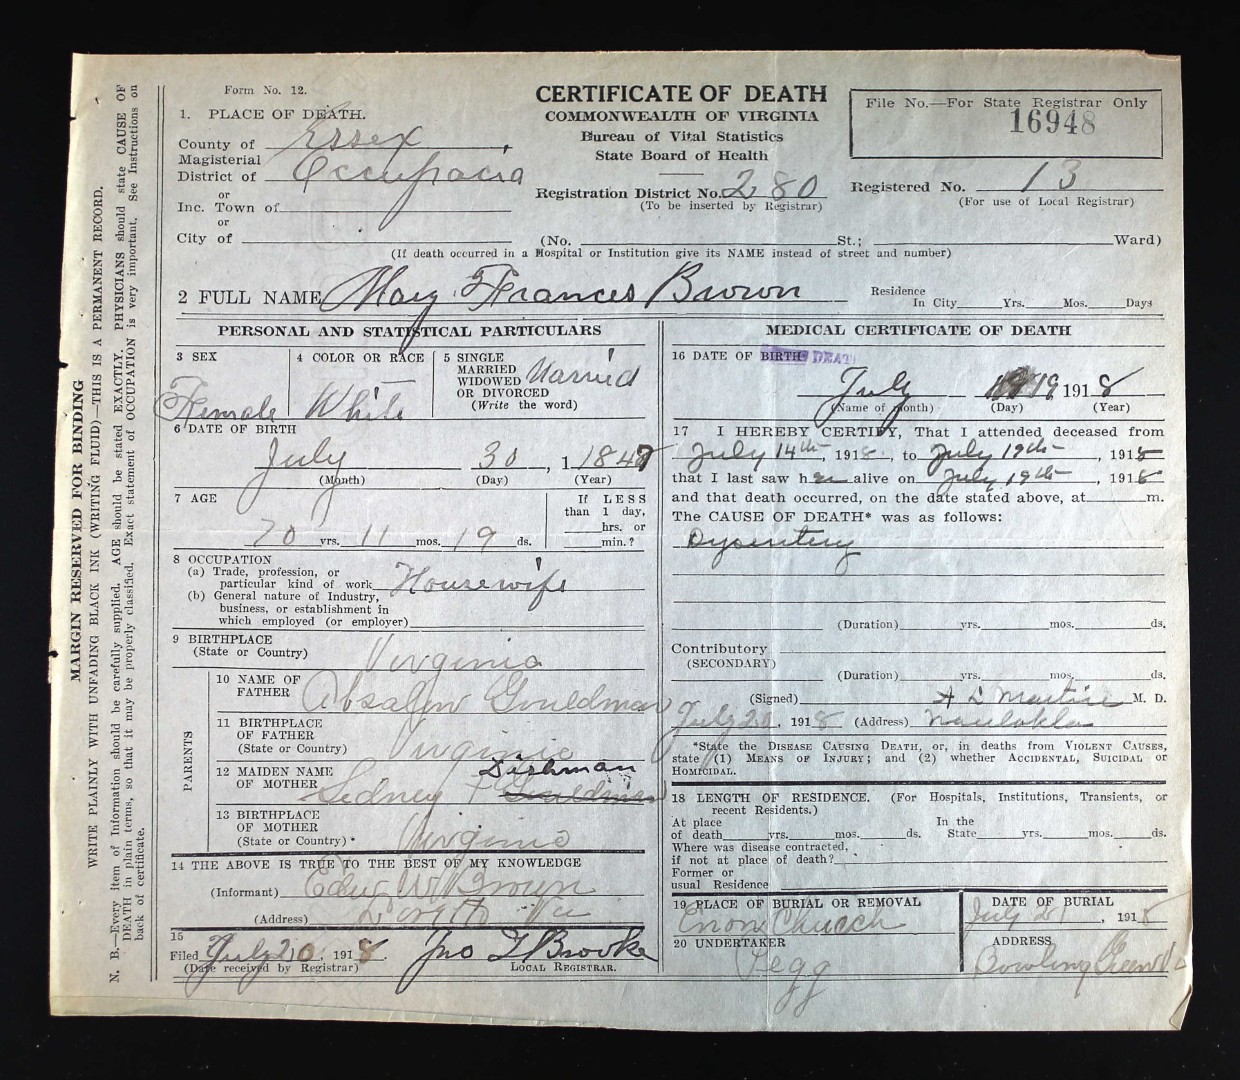 Form No. 12.
CERTIFICATE OF DEATH
COMMONWEALTH OF VIRGINIA
Bureau of Vital Statistics
State Board of Health
File No.—For State Registrar Only
16948
1. PLACE OF DEATH.
County of Essex
Magisterial
District of Occupacia
or
Inc. Town of
or
City of (No. St.; Ward)
Registration District No. 280
(To be inserted by Registrar)
Registered No. 13
(For use of Local Registrar)
(If death occurred in a Hospital or Institution give its NAME instead of street and number)
2 FULL NAME Mary Frances Brown
Residence
In City Yrs. Mos. Days
PERSONAL AND STATISTICAL PARTICULARS
3 SEX
Female
4 COLOR OR RACE
White
5 SINGLE
MARRIED
WIDOWED
OR DIVORCED
(Write the word)
Married
6 DATE OF BIRTH
July 30, 1 184
(Month) (Day) (Year)
7 AGE
70 yrs. 11 mos. 19 ds.
If LESS
than 1 day,
hrs. or
min.?
8 OCCUPATION
(a) Trade, profession, or
particular kind of work Housewife
(b) General nature of Industry,
business, or establishment in
which employed (or employer)
9 BIRTHPLACE
(State or Country) Virginia
PARENTS
10 NAME OF
FATHER Absalom Gouldman
11 BIRTHPLACE
OF FATHER
(State or Country) Virginia
12 MAIDEN NAME
OF MOTHER Sidney F Gouldman Dishman
13 BIRTHPLACE
OF MOTHER
(State or Country) Virginia
14 THE ABOVE IS TRUE TO THE BEST OF MY KNOWLEDGE
(Informant) Edw W Brown
(Address) Va
15
Filed July 20, 1918. Jno T Brooke
(Date received by Registrar) LOCAL REGISTRAR.
MEDICAL CERTIFICATE OF DEATH
16 DATE OF BIRTH DEATH
July 19 1918
(Name of month) (Day) (Year)
17 I HEREBY CERTIFY, That I attended deceased from
July 14th, 1918, to July 19th, 1918
that I last saw her alive on July 19th, 1918
and that death occurred, on the date stated above, at m.
The CAUSE OF DEATH* was as follows:
Dysentery
(Duration) yrs. mos. ds.
Contributory
(SECONDARY)
(Duration) yrs. mos. ds.
(Signed) A L Martin M. D.
July 20, 1918 (Address) Naulakla
*State the DISEASE CAUSING DEATH, or, in deaths from VIOLENT CAUSES,
state (1) MEANS OF INJURY; and (2) whether ACCIDENTAL, SUICIDAL or
HOMICIDAL.
18 LENGTH OF RESIDENCE. (For Hospitals, Institutions, Transients, or
recent Residents.)
At place In the
of death yrs. mos. ds. State yrs. mos. ds.
Where was disease contracted,
if not at place of death?
Former or
usual Residence
19 PLACE OF BURIAL OR REMOVAL
Enon Church
DATE OF BURIAL
July 21, 1918
20 UNDERTAKER
Pegg
ADDRESS
Bowling Green Va
MARGIN RESERVED FOR BINDING
WRITE PLAINLY WITH UNFADING BLACK INK (WRITING FLUID)—THIS IS A PERMANENT RECORD.
N. B.—Every item of Information should be carefully supplied. AGE should be stated EXACTLY. PHYSICIANS should state CAUSE OF
DEATH in plain terms, so that it may be properly classified. Exact statement of OCCUPATION is very important. See Instructions on
back of certificate.